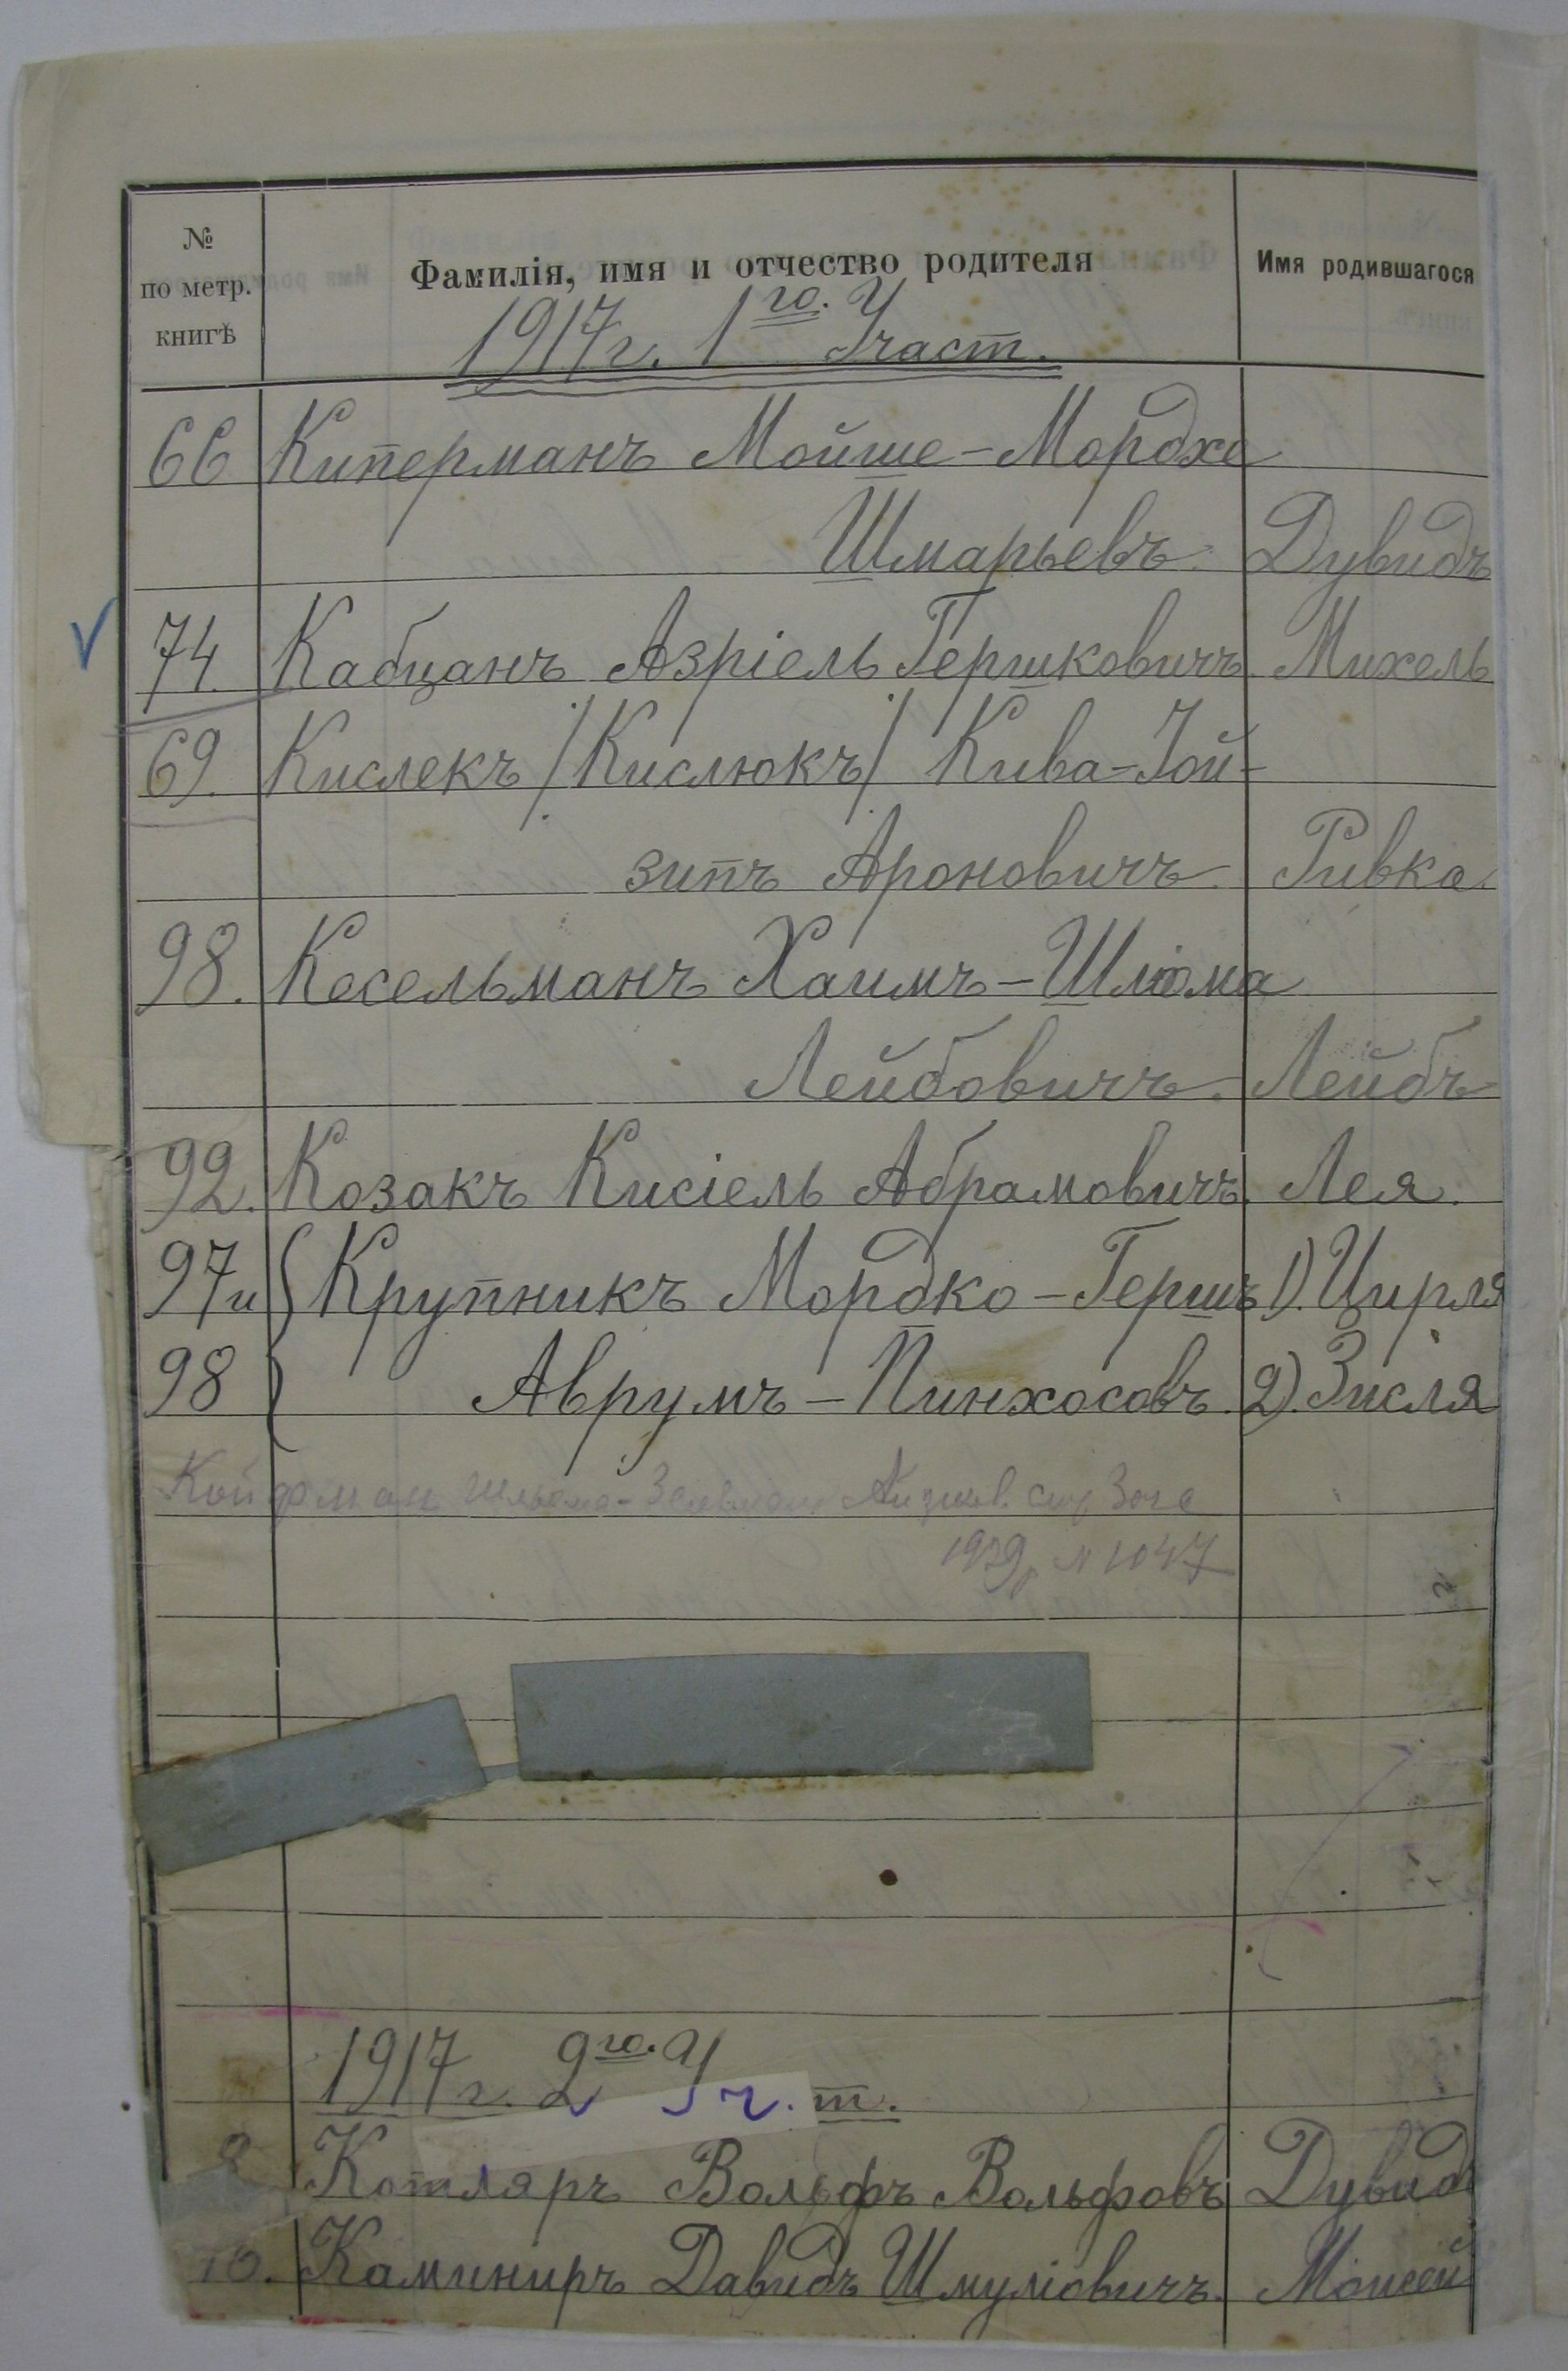 № по метр. книгѣ
Фамилія, имя и отчество родителя
Имя родившагося
1917 г. 1го. Участ.
66 Киперманъ Мойше-Мордхе
Шмарьевъ. Дувидъ
74. Кабцанъ Азріель Гершковичъ. Михель
69. Кислекъ /Кислюкъ/ Кива-Йой-
зипъ Ароновичъ. Ривка.
98. Кесельманъ Хаимъ-Шлома
Лейбовичъ. Лейбъ
92. Козакъ Кисіель Абрамовичъ. Лея.
97 и Крупникъ Мордко-Гершъ 1). Цирля
98 Аврумъ-Пинхосовъ. 2). Зисля
Койфман
1929 г. № 1047
1917 г. 2го. Уч. т.
Котляръ Вольфъ Вольфовъ Дувидъ
10. Каминиръ Давидъ Шмуліовичъ. Моисей